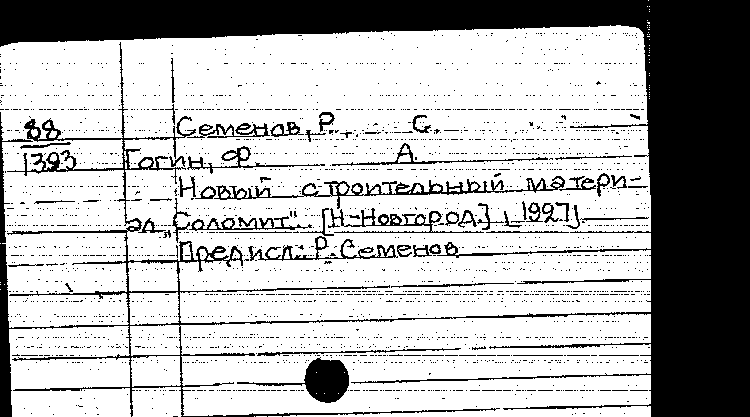 88 Семенов, Р. С.
1393 Гогин, Ф. А.
Новый строительный матери-
ал „Соломит". [Н-Новгород.] [1927].
Предисл.: Р. Семенов